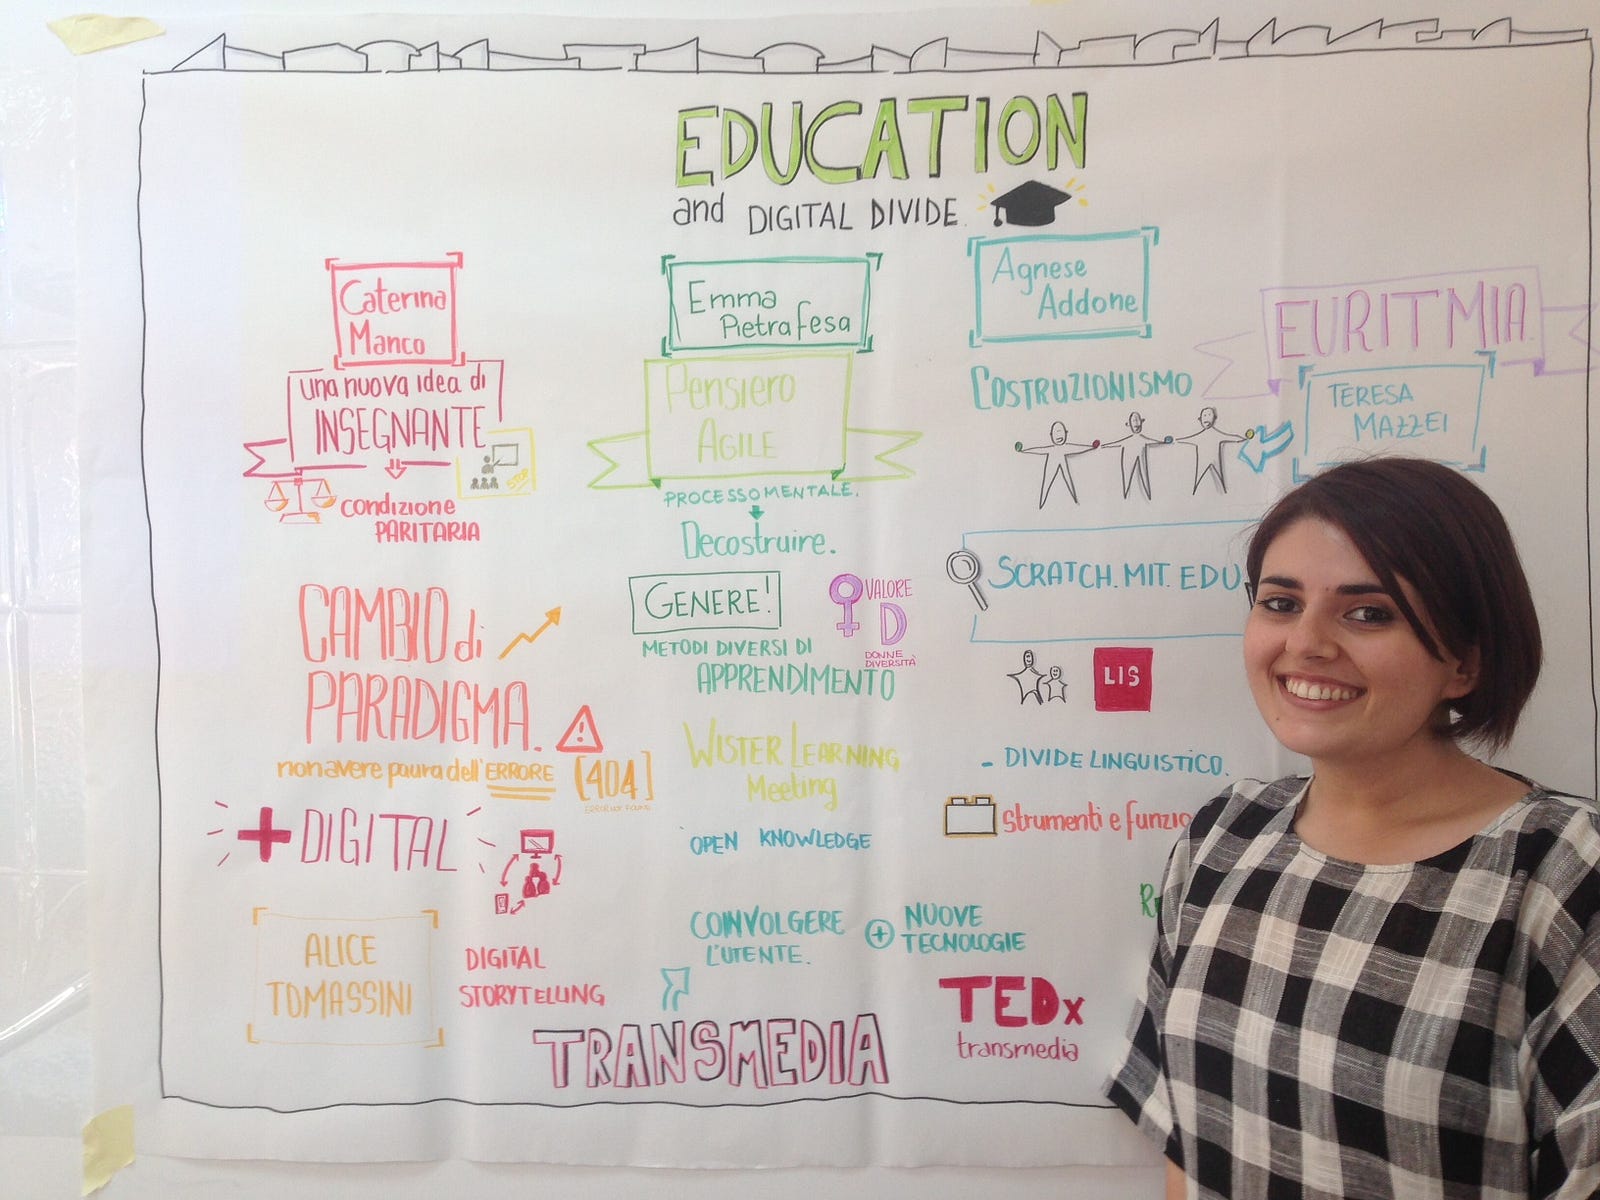 EDUCATION
and DIGITAL DIVIDE.
Caterina
Manco
una nuova idea di
INSEGNANTE
STOP
condizione
PARITARIA
CAMBIO di
PARADIGMA.
non avere paura dell'ERRORE
[404]
+ DIGITAL
ALICE
TOMASSINI
DIGITAL
STORYTELLING
Emma
Pietrafesa
Pensiero
AGILE
PROCESSO MENTALE.
Decostruire.
GENERE!
VALORE
D
DONNE
DIVERSITÀ
METODI DIVERSI DI
APPRENDIMENTO
WISTER LEARNING
Meeting
OPEN KNOWLEDGE
COINVOLGERE
L'UTENTE.
+ NUOVE
TECNOLOGIE
TRANSMEDIA
TEDx
transmedia
Agnese
Addone
COSTRUZIONISMO
EURITMIA.
TERESA
MAZZEI
SCRATCH.MIT.EDU
LIS
- DIVIDE LINGUISTICO.
Strumenti e funzio